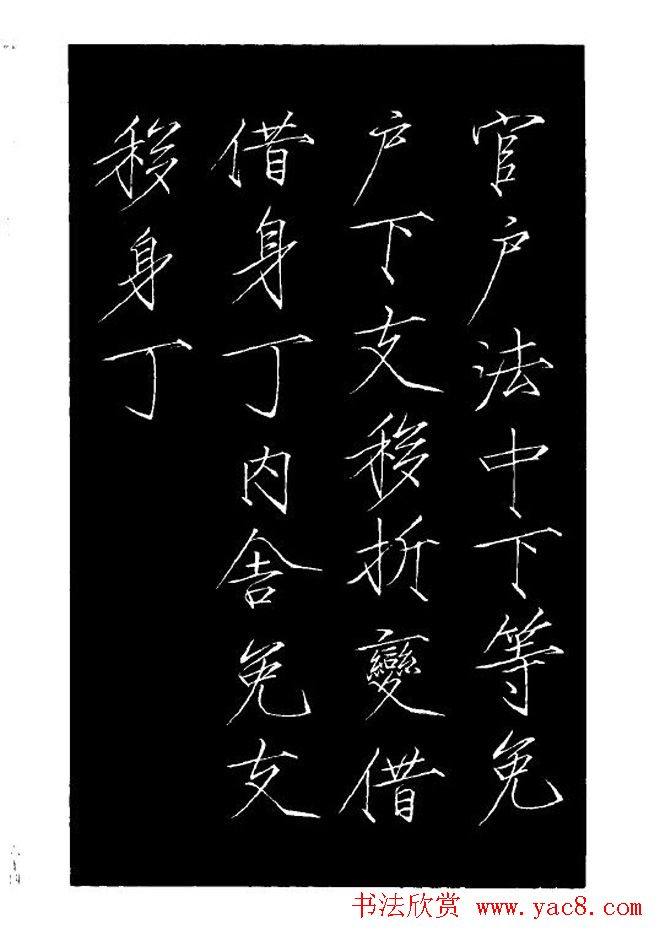 官戶法中下等免
戶下支移折變借
借身丁内舍免支
移身丁
书法欣赏 www.yac8.com